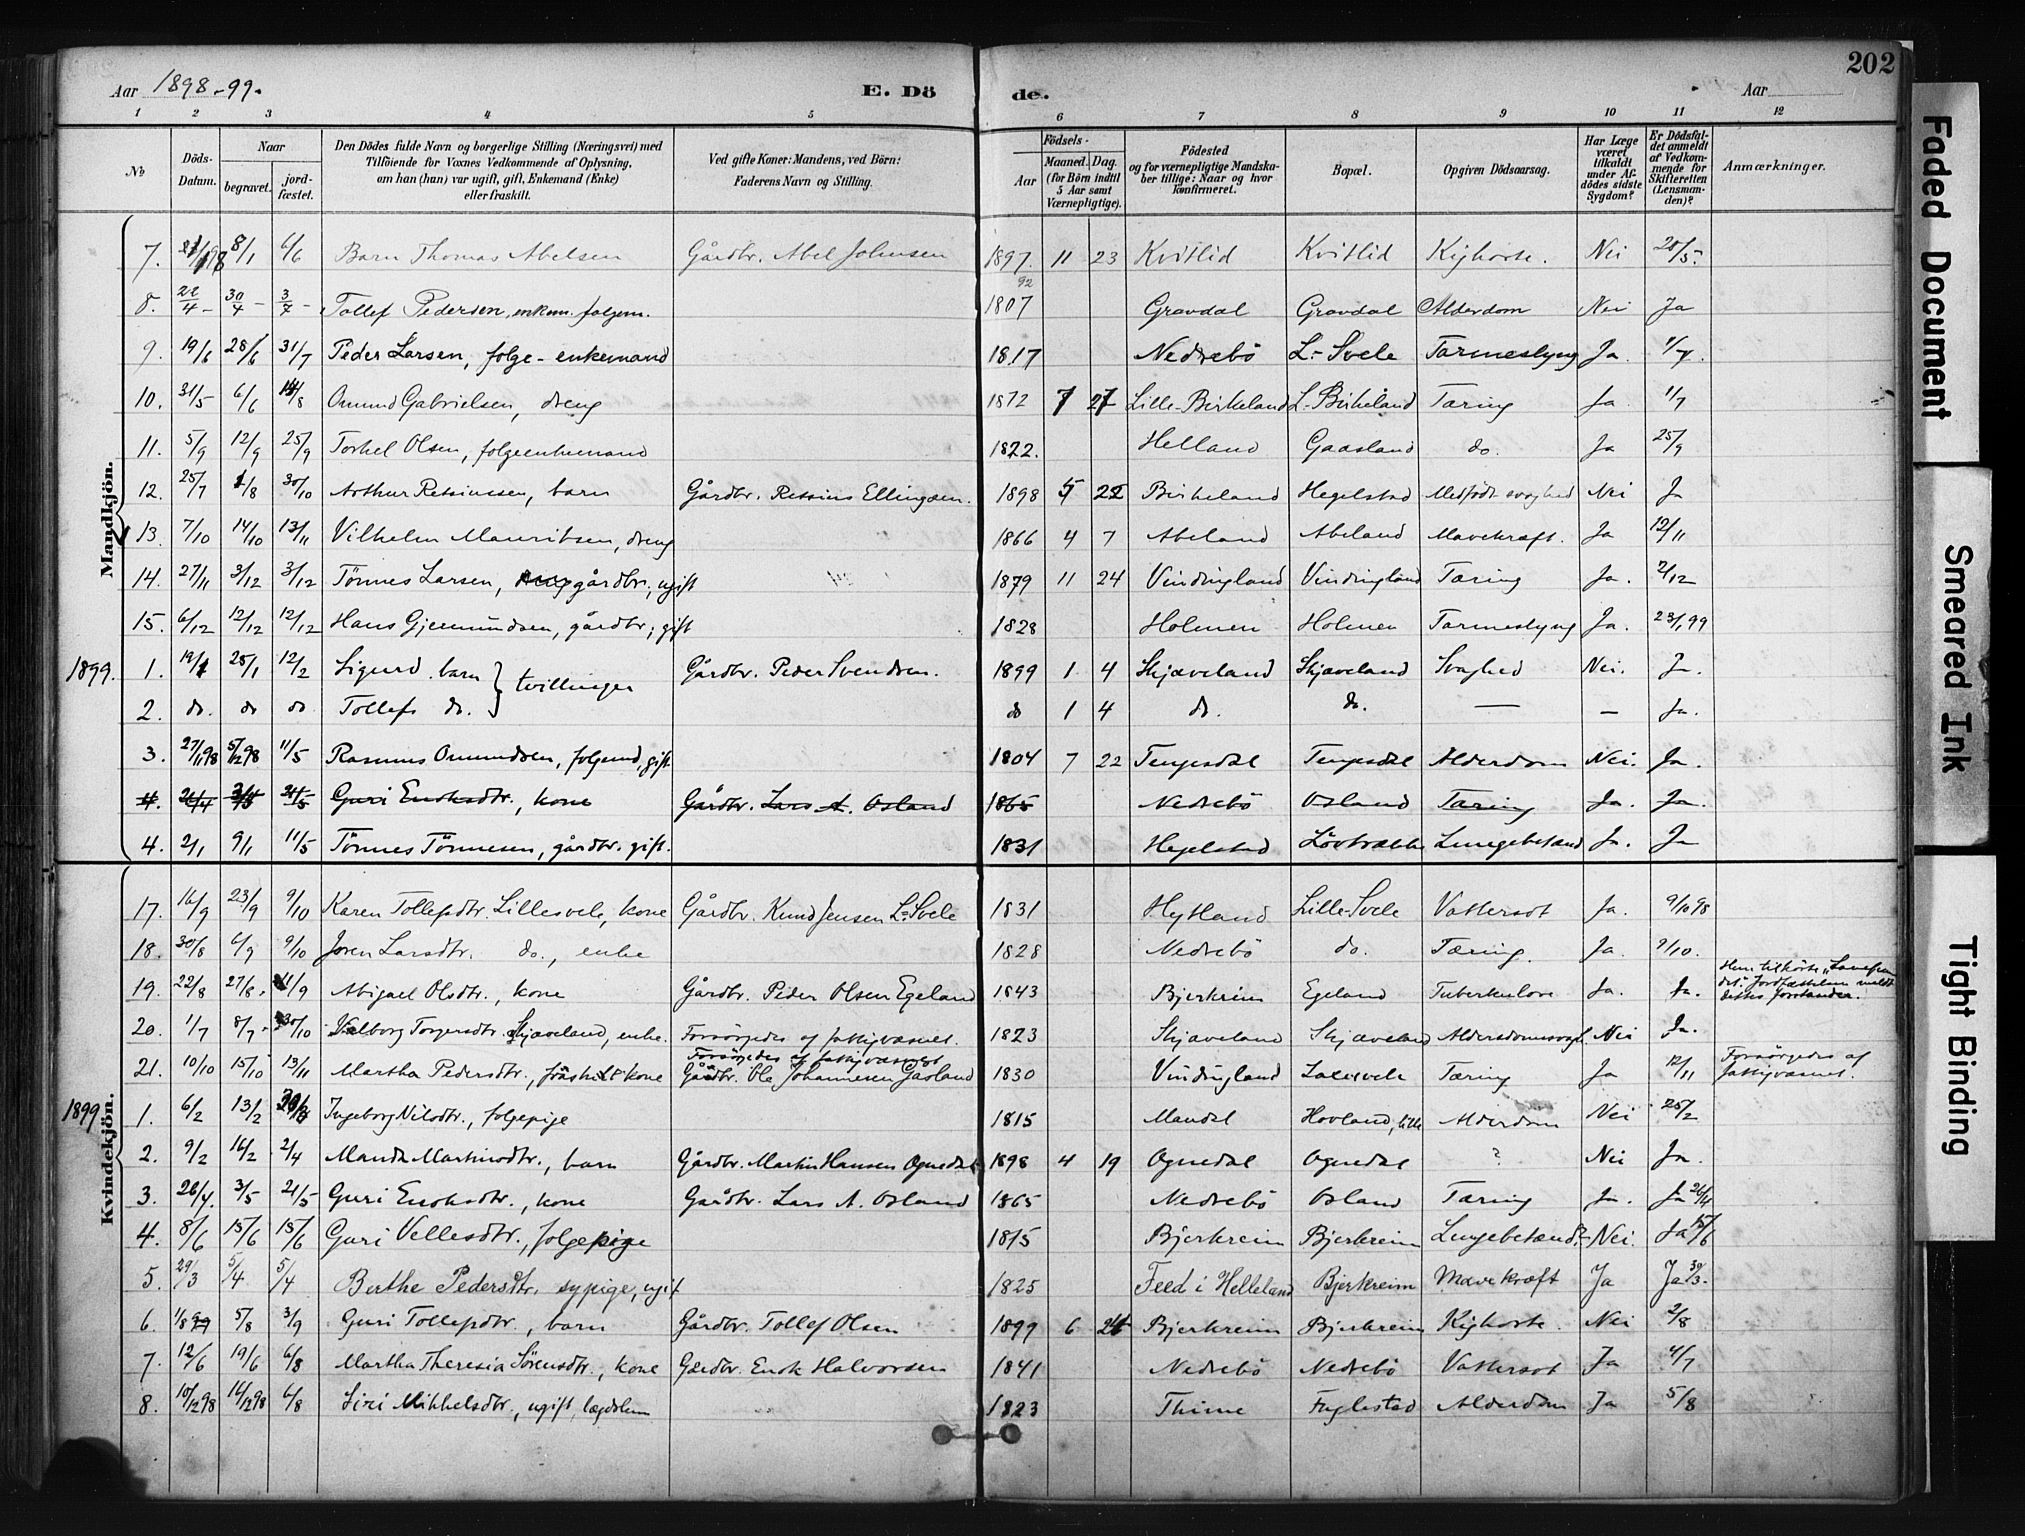 202
Aar 1898-99. E. Dö de. Aar
1 2 3 4 5 6 7 8 9 10 11 12
No
Döds-Datum.
Naar begravet. jord-fæstet.
Den Dödes fulde Navn og borgerlige Stilling (Næringsvei) med
Tilföiende for Voxnes Vedkommende af Oplysning,
om han (hun) var ugift, gift, Enkemand (Enke)
eller fraskilt.
Ved gifte Koner: Mandens, ved Börn:
Faderens Navn og Stilling.
Födsels-
Aar Maaned. Dag.
(for Börn indtil
5 Aar samt
Værnepligtige).
Födested
og for værnepligtige Mandska-
ber tillige: Naar og hvor
Konfirmeret.
Bopæl.
Opgiven Dödsaarsag.
Har Læge
været
tilkaldt
under Af-
dödes sidste
Sygdom?
Er Dödsfal-
det anmeldt
af Vedkom-
mende for
Skifteretten
(Lensman-
den)?
Anmærkninger.
Mandkjön.
7. 8/1 6/6 Barn Thomas Abelsen Gårdbr. Abel Johnsen 1897. 11 23 Kvitlid Kvitlid Kighoste. Nei 20/5.
8. 22/4 - 30/4 - 3/7 - Tollef Pedersen, enkem. folgem. 1807 Gravdal Gravdal Alderdom Nei Ja
9. 19/6 28/6 31/7 Peder Larsen, folge-enkemand 1817 Nedrebö L.-Svele Tarmeslyng Ja.
10. 31/5 6/6 14/8 Omund Gabrielsen, dreng 1872 7 27 Lille-Birkeland L.-Birkeland Tæring Ja. 1/7
11. 5/9 12/9 25/9 Torkel Olsen, folgeenkemand 1822. Helland Gaasland do. Ja 25/9
12. 25/7 1/8 30/10 Arthur Retsiussen, barn Gårdbr. Retsius Ellingsen. 1898 5 22 Birkeland Hegelstad Medfödt svaghed Nei J
13. 7/10 14/10 13/11 Vilhelm Mauritsen, dreng 1866 4 7 Abeland Abeland Mavekræft. Ja 12/11
14. 27/11 3/12 3/12 Tönnes Larsen, gårdbr., ugift 1879 11 24 Vindingland Vindingland Tæring Ja. 2/12
15. 6/12 12/12 12/12 Hans Gjermundsen, gårdbr., gift 1828 Holmen Holmen Tarmeslyng Ja. 23/1 99
1899. 1. 19/1 25/1 12/2 Sigurd barn } tvillinger Gårdbr. Peder Svendsen. 1899 1 4 Skjæveland Skjæveland Svaghed Nei. Ja.
2. do. do do Tollef do. do 1 4 do. do. — — Ja.
3. 27/11 98 5/12 98 11/5 Rasmus Omundsen, folgemd, gift 1804 7 22 Tengesdal Tengesdal Alderdom Nei. Ja.
4. 26/4 3/5 21/5 Guri Enoksdtr., kone Gårdbr. Lars A. Osland 1865 Nedrebö Osland Tæring Ja. Ja.
4. 2/1 9/1 11/5 Tönnes Tönnesen, gårdbr. gift. 1831 Hegelstad Lövbrække Lungebetænd Ja. Ja
Kvindekjön.
17. 16/9 23/9 9/10 Karen Tollefsdtr. Lillesvele, kone Gårdbr. Knud Jensen L-Svele 1831 Hytland Lille-Svele Vattersot Ja. 9/10 98
18. 30/8 6/9 9/10 Joren Larsdtr. do., enke 1828 Nedrebö do. Tæring. Ja. 9/10.
19. 22/8 27/8. 11/9 Abigael Olsdtr., kone Gårdbr. Peder Olsen Egeland 1843 Bjerkreim Egeland Tuberkulose Ja. Ja. Hun tilhörte
20. 1/7 8/7 - 30/10 Valborg Torgersdtr. Skjæveland, enke. Forsörgedes af fattigvæsnet. 1823 Skjæveland Skjæveland Nei Ja.
21. 10/10 15/10 13/11 Martha Pedersdtr., fraskilt kone Forsörgedes af fattigvæsnet Gårdbr. Ole Johannesen Gasland 1830 Vindingland Tæring Ja 12/11 Forsörgedes af fattigvæsnet.
1899 1. 6/2 13/2 Ingeborg Nilsdtr., folgepige 1815 Mandal Hovland, lille Alderdom Nei 25/2
2. 9/2 16/2 2/4 Manda Martinsdtr., barn Gårdbr. Martin Hansen Ognedal 1898 4 19 Ognedal Ognedal ? Nei Ja.
3. 26/4. 3/5 21/5 Guri Enoksdtr., kone Gårdbr. Lars A. Osland 1865 Nedrebö Osland Tæring Ja. Ja 26/4
4. 8/6 15/6 15/6 Guri Vellesdtr., folgepige 1815 Bjerkreim Bjerkreim Lungebetænd. Nei. Ja 15/6
5. 29/3 5/4 5/4 Berthe Pedersdtr. sypige, ugift 1825 Feed i Helleland Bjerkreim Mavekræft Ja Ja 30/3.
6. 1/8 99 5/8 3/9 Guri Tollefsdtr., barn Gårdbr. Tollef Olsen 1899 6 26 Bjerkreim Bjerkreim Kighoste. Nei 2/8
7. 12/6 19/6 6/8 Martha Theresia Sörensdtr., kone Gårdbr. Enok Halvorsen 1841 Nedrebö Nedrebö Vattersot Ja 4/7
8. 10/12 98 16/12 98 6/8 Siri Mikkelsdtr., ugift, lægdslem 1823 Thime Fuglestad Alderdom Ja 5/8
Faded Document
Smeared Ink
Tight Binding